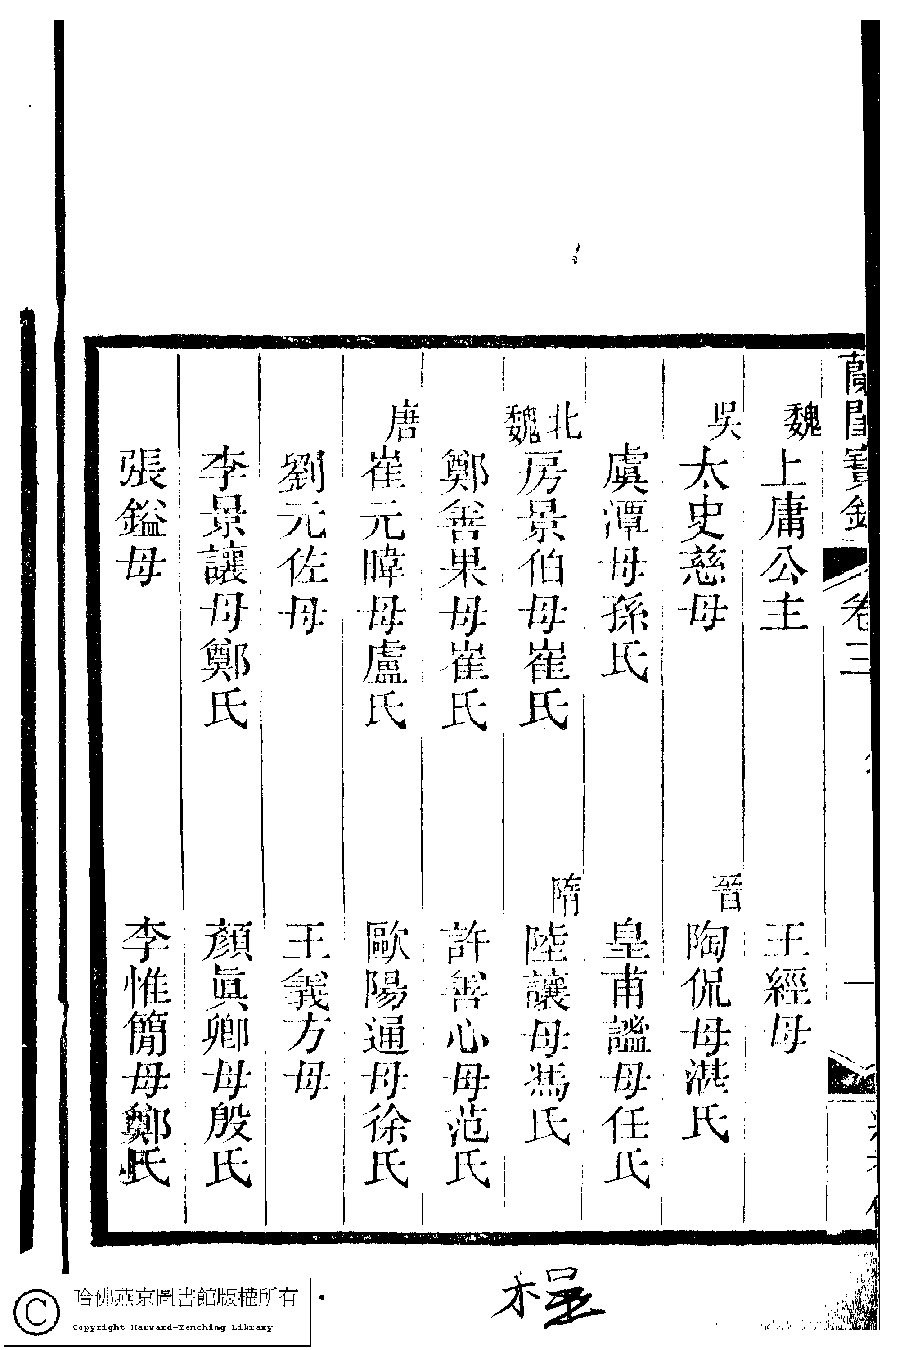 蘭閨寶錄 卷三
魏 上庸公主 王經母
吳 太史慈母 晉 陶侃母湛氏
虞潭母孫氏 皇甫謐母任氏
北魏 房景伯母崔氏 隋 陸讓母馮氏
鄭善果母崔氏 許善心母范氏
唐 崔元暐母盧氏 歐陽通母徐氏
劉元佐母 王義方母
李景讓母鄭氏 顏眞卿母殷氏
張鎰母 李惟簡母鄭氏
哈佛燕京圖書館版權所有
Copyright Harvard-Yenching Library